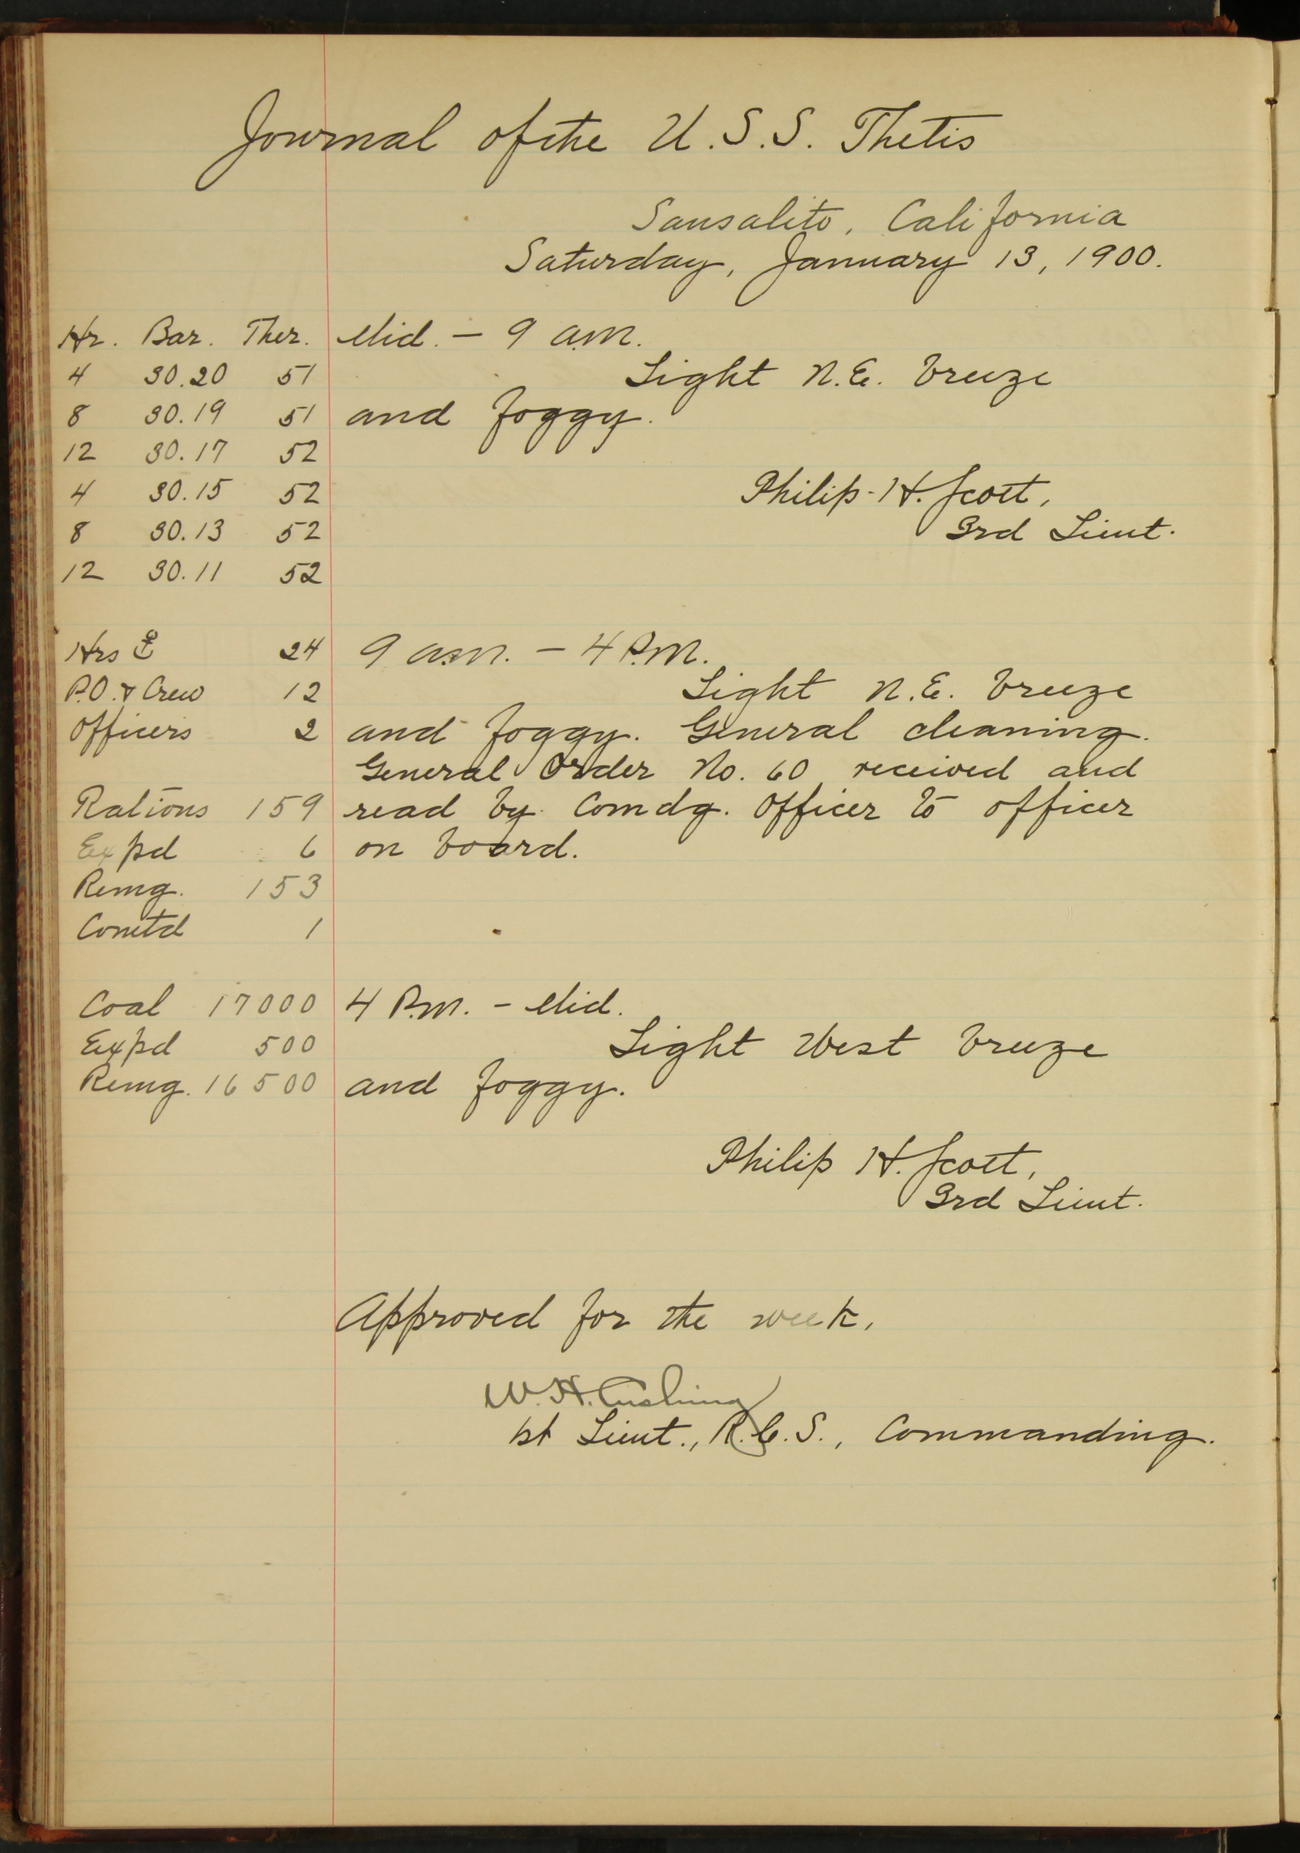 Journal of the U.S.S. Thetis
Sausalito, California
Saturday, January 13, 1900.
Hr. Bar. Ther. Mid. — 9 a.m.
4 30.20 51 Light N.E. breeze
8 30.19 51 and foggy.
12 30.17 52
4 30.15 52 Philip H. Scott,
8 30.13 52 3rd Lieut.
12 30.11 52
Hrs ⚓ 24 9 a.m. — 4 P.M.
P.O. & Crew 12 Light N.E. breeze
Officers 2 and foggy. General cleaning.
General Order No. 60 received and
Rations 159 read by Comdg. Officer to officer
Expd 6 on board.
Remg. 153
Comtd 1
Coal 17000 4 P.M. — Mid.
Expd 500 Light West breeze
Remg. 16500 and foggy.
Philip H. Scott,
3rd Lieut.
Approved for the week,
W. H. Cushing
1st Lieut., R.C.S., Commanding.